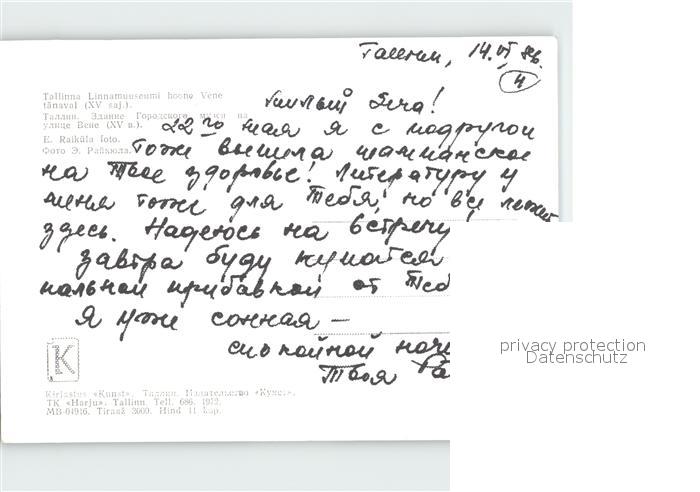 Таллин, 14.VI 86.
4
Милый
22го мая я с подругой
тоже выпила шампанское
на Твое здоровье! Литературу у
меня тоже для Тебя, но все лежит
здесь. Надеюсь на встречу!
завтра буду купатся
нальной прибавкой от Теб
Я уже сонная —
спокойной ноч
Твоя
Tallinna Linnamuuseumi hoone Vene
tänaval (XV saj.).
Таллин. Здание Городского музея на
улице Вене (XV в.).
E. Raiküla foto.
Фото Э. Райкюла.
K
Kirjastus «Kunst». Таллин. Издательство «Кунст».
TK «Harju». Tallinn. Tell. 686. 1972.
MB-04916. Tiraaž 3000. Hind 11 kop.
privacy protection
Datenschutz